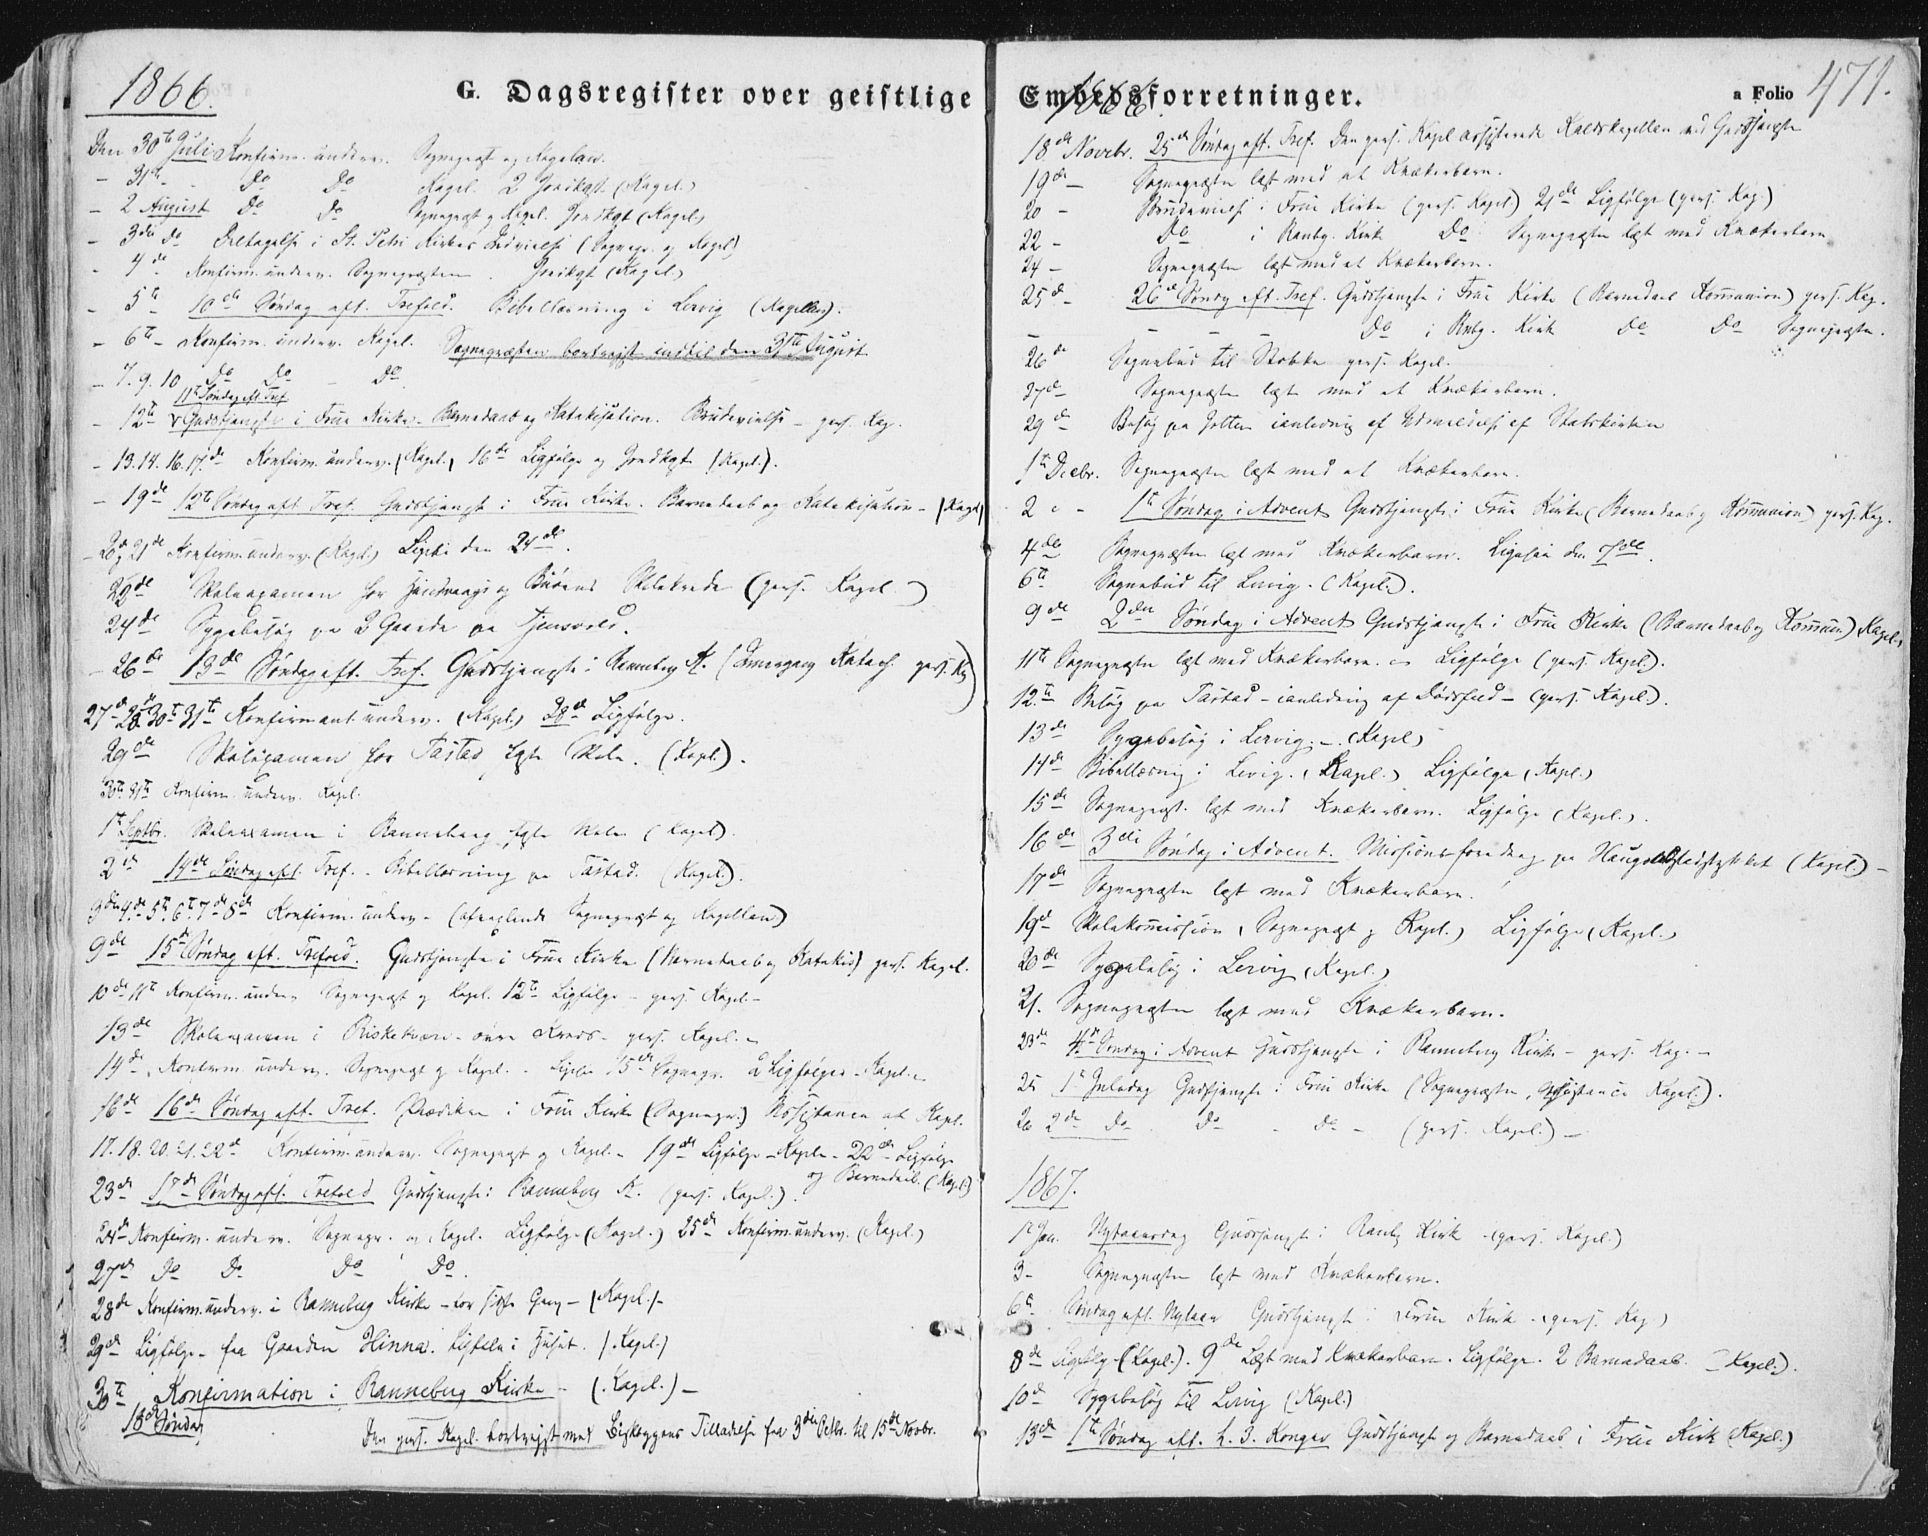 1866.
G. Dagsregister over geistlige
Den 30te Juli Konfirm. underv. Sognepræst og Kapelan.
- 31te - Do Do Kapel. 2 (Kapel.)
- 2 August Do Do Sognepræst og Kapel. (Kapel.)
- 3die do Deltagelse i St. Petri Kirkes Indvielse (Sognepr. og Kapel)
- 4de Konfirm. underv. Sognepræsten. (Kapel.)
- 5te 10de Søndag eft. Trefold. Bibellæsning i Lervig (Kapellan).
- 6te - Konfirm. underv. Kapel. Sognepræsten bortreist indtil den 31te August
- 7. 9. 10 Do Do - Do
11te Søndag eft. Tref.
- 12te Gudstjeneste i Frue Kirke. Barnedaab og Katekisation. Brudevielse - pers. Kap.
- 13. 14. 16. 17de Konfirm. underv. (Kapel.) 16de Ligfølge og (Kapel.).
- 19de 12te Søndag eft Tref. Gudstjenest i Frue Kirke. Barnedaab og Katekisation - (Kapel)
- 20de 21de Konfirm. underv. (Kapel.) den 24de.
29de Skoleexamen for og Buøens Skolekreds (pers. Kapel.)
24de Sygebesøg paa 2 Gaarde paa Tjensvold.
- 26de 13de Søndag eft. Tref. Gudstjeneste i Rennebg K. ( Katech. pers. Kap)
27de 28de 30te 31te Konfirmant underv. (Kapel.) 28de Ligfølge.
29de Skoleexamen for Tasted Skole. (Kapel.).
30te 31te Konfirm. underv. Kapel.
1te Septbr. Skoleexamen i Ranneberg Skole (Kapel).
2de 14de Søndag eft. Tref. - Bibellæsning paa Tastad. (Kapel.).
3die 4de 5te 6te 7de 8de Konfirm. underv. - (afvexlende Sognepræst og Kapellan)
9de 15de Søndag eft. Trefold. Gudstjeneste i Frue Kirke (Barnedaab og Katekis) pers. Kapel.
10de 11te Konfirm. underv Sognepræst og Kapel. 12te Ligfølge - pers. Kapel -
13de Skoleexamen i øvre Kreds - pers. Kapel. -
14de. Konfirm. underv. Sognepræst og Kapel. - 15de Sognepr. 2 Ligfølger - Kapel. -
16de 16de Søndag eft. Tref. Prædiken i Frue Kirke (Sognepr.) Assistance af Kapel.
17. 18. 20. 21. 22de Konfirm. underv. Sognepræst og Kapel. - 19de Ligfølge - Kapel. - 22de Ligfølge
og Barnedaab. (Kapel.)
23de 17de Søndag eft. Trefold Gudstjeneste i Ranneberg K. (pers. Kapel.)
24de Konfirm. underv. Sognepr. og Kapel. Ligfølge (Kapel.) 25de Konfirm. underv. (Kapel.)
27de Do Do Do Do.
28de Konfirm. underv. i Ranneberg Kirke - for sidste Gang - (Kapel.) -
29de Ligfølge - fra Gaarden Hinna. i Huset. (Kapel.)
30te Konfirmation i Ranneberg Kirke - (Kapel.) -
18de Søndag
Den pers. Kapel. bortreist med Biskoppens Tilladelse fra 3die Octbr. til 15de Novbr.
1866
Embedsforretninger.
a Folio 471.
18de Novebr. 25de Søndag eft. Tref. Den pers. Kapel assisterede Kaldskapellan ved Gudstjeneste
19de - Sognepræsten læst med et Kvækerbarn.
20 - Brudevielse i Frue Kirke (pers. Kapel) 21de Ligfølge (pers. Kap.)
22 - Do i Ranbg. Kirke Do Sognepræsten læst med Kvækerbarn
24 - Sognepræsten læst med et Kvækerbarn.
25de - 26de Søndg eft. Tref. Gudstjeneste i Frue Kirke (Barnedaab Kommunion) pers. Kap.
- - - - Do i Rnbg. Kirk Do Do Sognepræsten.
26de Sognebud til Stokka pers. Kapel.
27de Sognepræsten læst med et Kvækerbarn.
29de Besøg paa i anledning af Udmeldelse af Statskirken
1te Decbr. Sognepræsten læst med et Kvækerbarn.
2 - 1te Søndag i Advent Gudstjeneste i Frue Kirke (Barnedaab og Kommunion) pers. Kap.
4de Sognepræsten læst med Kvækerbarn. den 7de.
6te Sognebud til Lervig. (Kapel.).
9de 2den Søndag i Advent Gudstjeneste i Frue Kirke (Barnedaab og Kommun) Kapel.
11te Sognepræsten læst med Kvækerbarn. - Ligfølge (pers. Kapel).
12te Besøg paa Tastad - i anledning af Dødsfald - (pers. Kapel).
13de Sygebesøg i Lervig. - (Kapel)
14de Bibellæsning i Lervig. (Kapel.) Ligfølge (Kapel.)
15de Sognepræst. læst med Kvækerbarn. Ligfølge (Kapel.).
16de 3die Søndag i Advent. Missionsforedrag paa (Kapel.) -
17de Sognepræsten læst med Kvækerbarn.
19de Skolekommission (Sognepræst og Kapel.) Ligfølge (Kapel.)
20de Sygebesøg i Lervig (Kapel.)
21. Sognepræsten læst med Kvækerbarn.
23de 4de Søndag i Advent Gudstjeneste i Ranneberg Kirke - pers. Kap. -
25 1te Juledag Gudstjeneste i Frue Kirke (Sognepræsten, Assistance Kapel.).
26 2de do. Do - do - (pers. Kapel.) -
1867.
1te Jan. Nytaarsdag Gudstjeneste i Ranbg Kirk - (pers. Kapel.)
3 - Sognepræsten læst med Kvækerbarn.
6te Søndag eft. Nytaar Gudstjeneste i Frue Kirke (pers. Kap)
8de Ligfølg (Kapel.). 9de Læst med Kvækerbarn. Ligfølge. 2 Barnedaab. - Kapel.).
10de Sygebesøg til Lervig (Kapel.)
13de 1te Søndag eft. h. 3. Konger Gudstjeneste og Barnedaab i Frue Kirk (Kapel.)